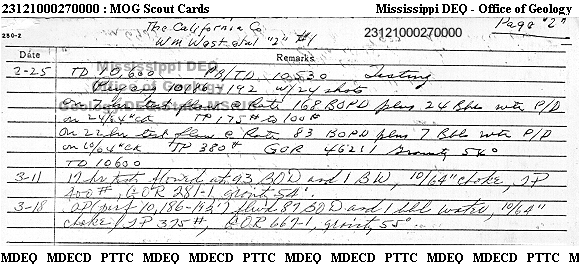 23121000270000 : MOG Scout Cards Mississippi DEQ - Office of Geology
The California Co Page "2"
250-2 Wm West, et al "2" #1 23121000270000
Date Remarks
Mississippi DEQ
2-25 TD 10,600 PB/TD 10,530 Testing
Office of Geology
10,186-192 w/24 shots
On hr test flow @ Rate 168 BOPD plus 24 Bbls wtr P/D
on 24/64" ck TP 175# to 100#
On 22 hr test flow @ Rate 83 BOPD plus 7 Bbls wtr P/D
on 10/64" ck TP 380# GOR Gravity
TD 10600
3-11 12 hr test flowed at 93 BOD and 1 BW, 10/64" choke, TP
GOR 281-1 gravity
3-18 OP (perf 10,186-192') flwd 87 BOD and 1 bbl water, 10/64"
choke, TP 375#, GOR 667-1, gravity, 55°.
MDEQ MDECD PTTC MDEQ MDECD PTTC MDEQ MDECD PTTC M